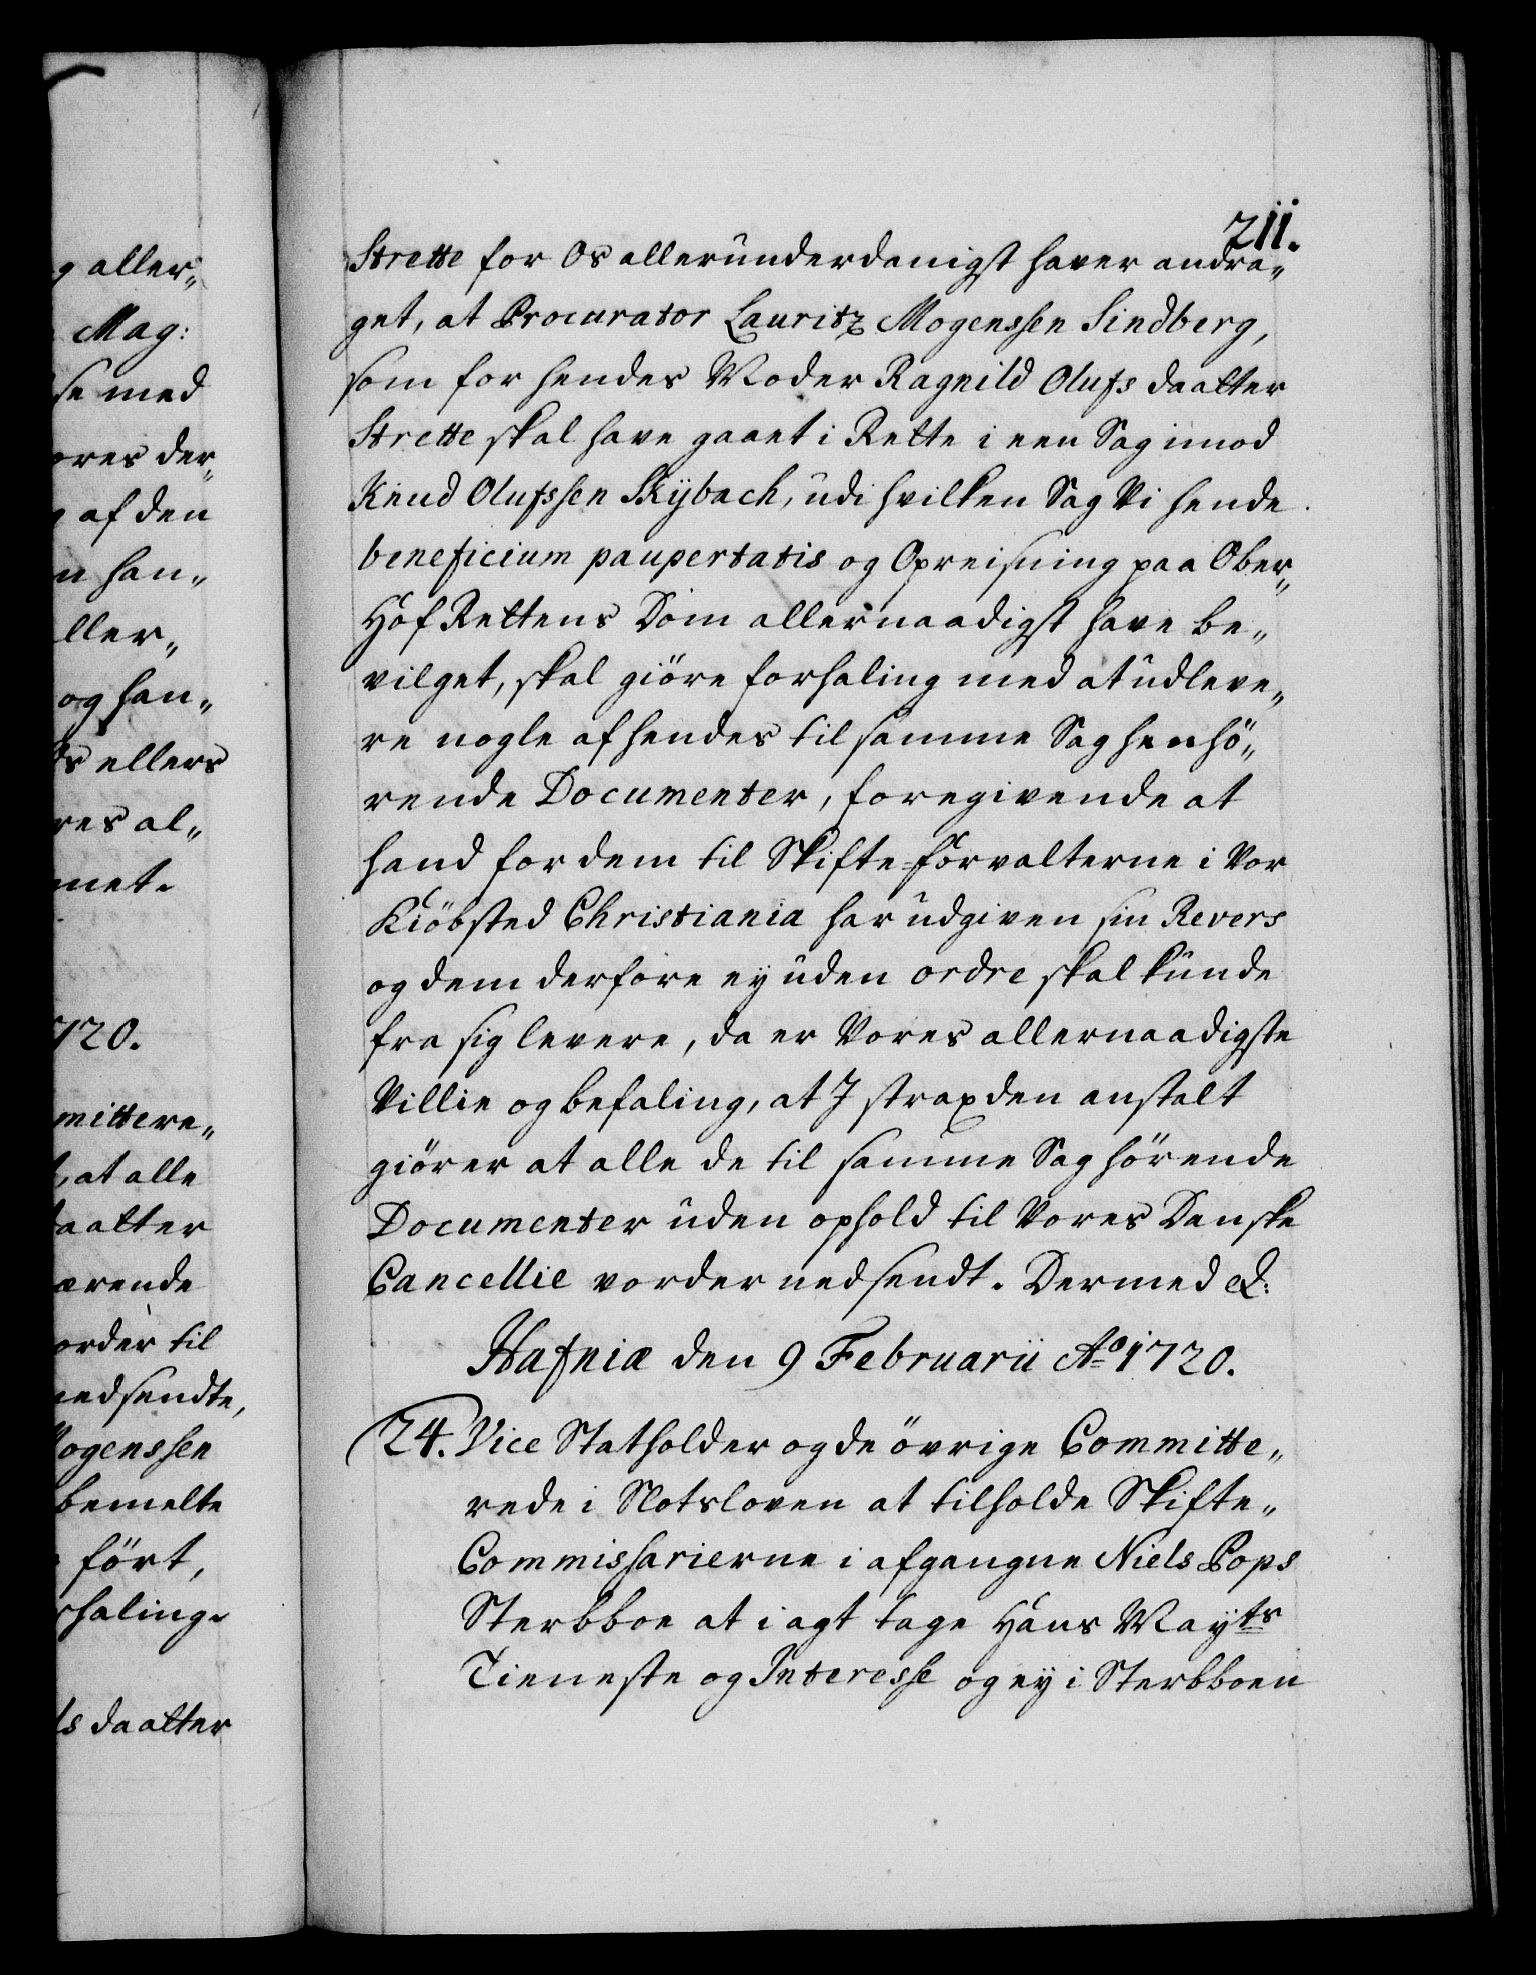 g aller„
Mag:
se med
ores der„
g af den
n han„
ller„
og han„
ellers
res al„
met.
720.
mittere„
at alle
aatter
ærende
order til
nedsendte,
Mogenssen
bemelte
ført,
rhaling.
ls daatter
211.
Strette for Os allerunderdanigst haver andra„
get, at Procurator Lauritz Mogenssen Sindberg,
som for hendes Moder Ragnild Olufs daatter
Strette skal have gaaet i Rette i een Sag imod
Knud Olufssen Skÿbach, udi hvilken Sag Vi hende
beneficium paupertatis og Opreisning paa Ober„
Hof Rettens Dom allernaadigst have be„
vilget, skal giöre forhaling med at udleve„
re nogle af hendes til samme Sag henhö„
rende Documenter, foregivende at
hand for dem til Skifte-forvalterne i Vor
Kiöbsted Christiania har udgiven sin Revers
og dem derfore ey uden ordre skal kunde
fra sig levere, da er Vores allernaadigste
Villie og befaling, at I strax den anstalt
giörer at alle de til samme Sag hörende
Documenter uden ophold til Vores Danske
Cancellie vorder nedsendt. Dermed &:
Hafniæ den 9 Februarii Ao 1720.
24. Vice Statholder og de övrige Committe„
rede i Slotsloven at tilholde Skifte„
Commissarierne i afgangne Niels Pops
Sterbboe at i agt tage Hans Mayts
Tieneste og Interesse og ey i Sterbboen